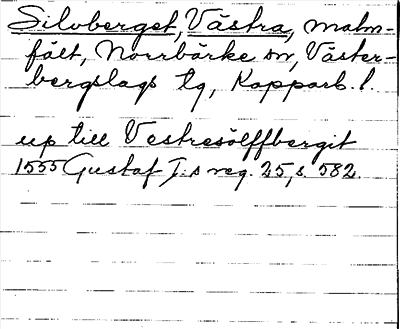 Silvberget, Västra, malm-
fält, Norrbärke sn, Väster-
bergslags tg, Kopparb. l.
up till Vestresölffbergit
1555 Gustaf I:s reg. 25, s. 582.